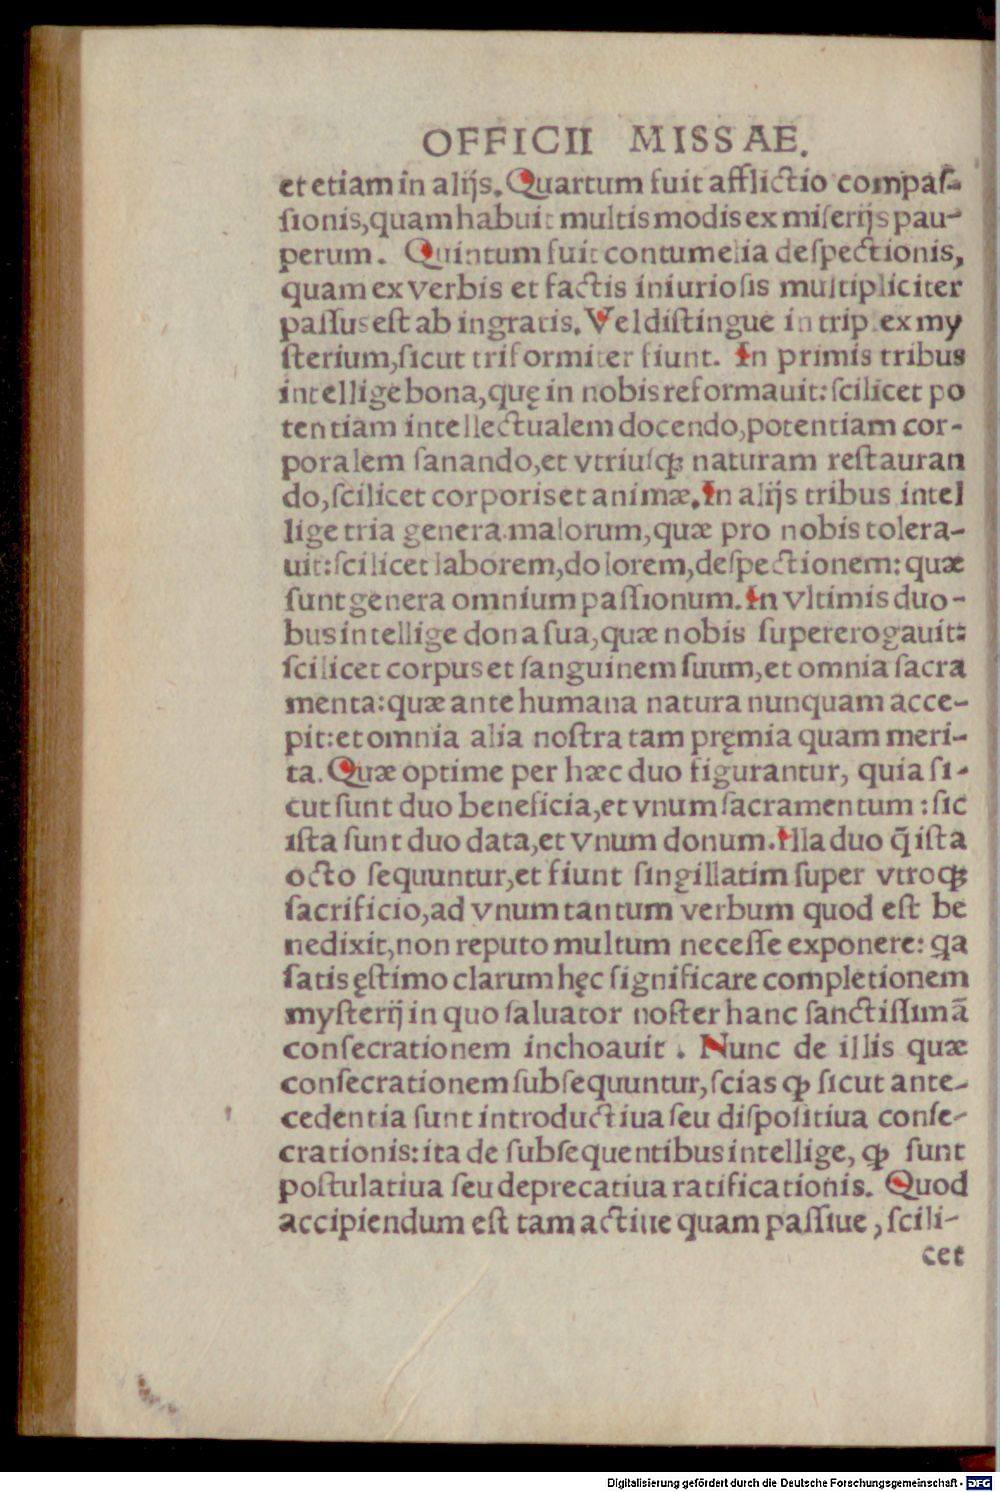 OFFICII MISSAE.
et etiam in alijs. Quartum fuit afflictio compaſ-
ſionis, quam habuit multis modis ex miſerijs pau-
perum. Quintum fuit contumelia deſpectionis,
quam ex verbis et factis iniurioſis multipliciter
paſſus eſt ab ingratis. Vel diſtingue in trip. ex my
ſterium, ſicut triformiter fiunt. In primis tribus
intellige bona, quę in nobis reformauit: ſcilicet po
tentiam intellectualem docendo, potentiam cor-
poralem ſanando, et vtriuſqꝫ naturam reſtauran
do, ſcilicet corporis et animæ. In alijs tribus intel
lige tria genera malorum, quæ pro nobis tolera-
uit: ſcilicet laborem, dolorem, deſpectionem: quæ
ſunt genera omnium paſſionum. In vltimis duo-
bus intellige dona ſua, quæ nobis ſupererogauit:
ſcilicet corpus et ſanguinem ſuum, et omnia ſacra
menta: quæ ante humana natura nunquam acce-
pit: et omnia alia noſtra tam pręmia quam meri-
ta. Quæ optime per hæc duo figurantur, quia ſi-
cut ſunt duo beneficia, et vnum ſacramentum: ſic
iſta ſunt duo data, et vnum donum. Illa duo q̃ iſta
octo ſequuntur, et fiunt ſingillatim ſuper vtroqꝫ
ſacrificio, ad vnum tantum verbum quod eſt be
nedixit, non reputo multum neceſſe exponere: ꝗa
ſatis ęſtimo clarum hęc ſignificare completionem
myſterij in quo ſaluator noſter hanc ſanctiſſimã
conſecrationem inchoauit. Nunc de illis quæ
conſecrationem ſubſequuntur, ſcias ꝙ ſicut ante-
cedentia ſunt introductiua ſeu diſpoſitiua conſe-
crationis: ita de ſubſequentibus intellige, ꝙ ſunt
poſtulatiua ſeu deprecatiua ratificationis. Quod
accipiendum eſt tam actiue quam paſſiue, ſcili-
cet
Digitalisierung gefördert durch die Deutsche Forschungsgemeinschaft - DFG